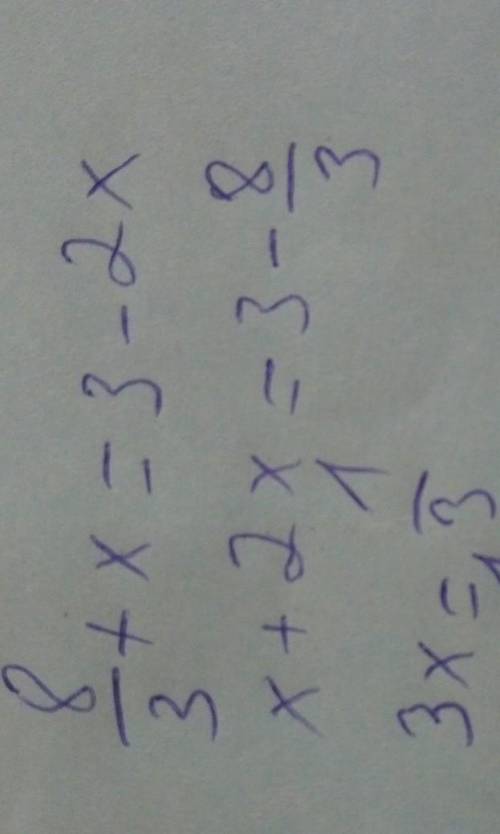 8/3 + x = 3 - 2x
x + 2x = 3 - 8/3
3x = 1/3